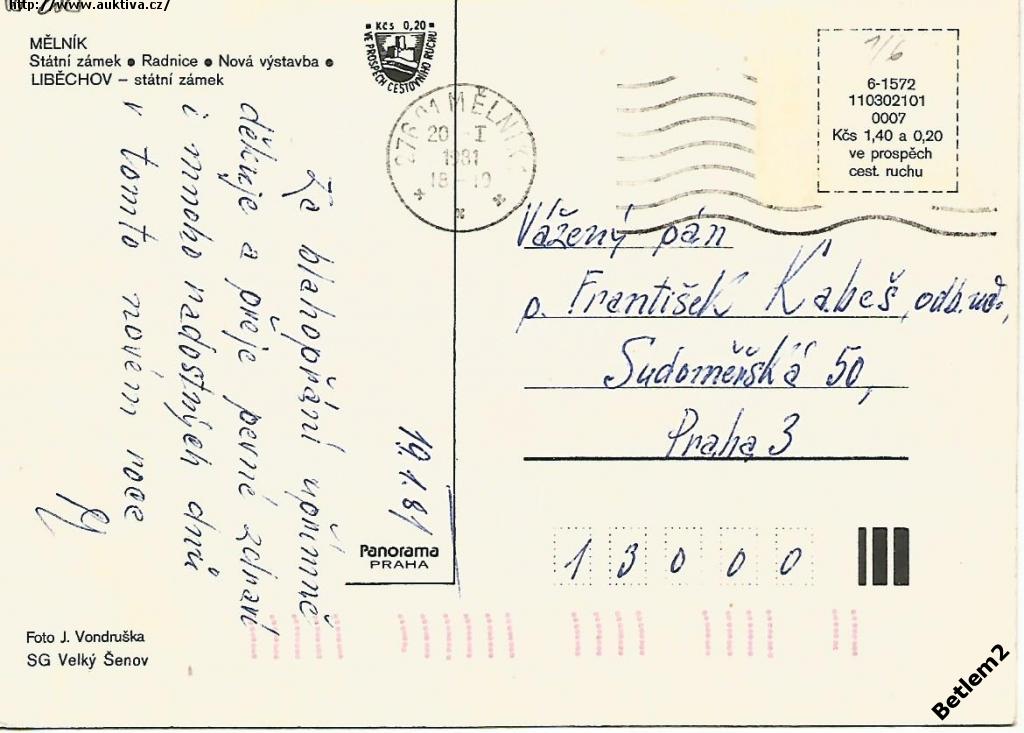 http://www.auktiva.cz/
MĚLNÍK
Státní zámek ● Radnice ● Nová výstavba ●
LIBĚCHOV – státní zámek
Kčs 0,20
VE PROSPĚCH CESTOVNÍHO RUCHU
276 01 MĚLNÍK
20 I
1981
18-19
1/6
6-1572
110302101
0007
Kčs 1,40 a 0,20
ve prospěch
cest. ruchu
Za blahopřání upřímně
děkuje a přeje pevné zdraví
i mnoho radostných dnů
v tomto novém roce
19.1.81
Vážený pán
p. František Kabeš, odb. uč.,
Sudoměřská 50,
Praha 3
Panorama
PRAHA
1 3 0 0 0
Foto J. Vondruška
SG Velký Šenov
Betlem2